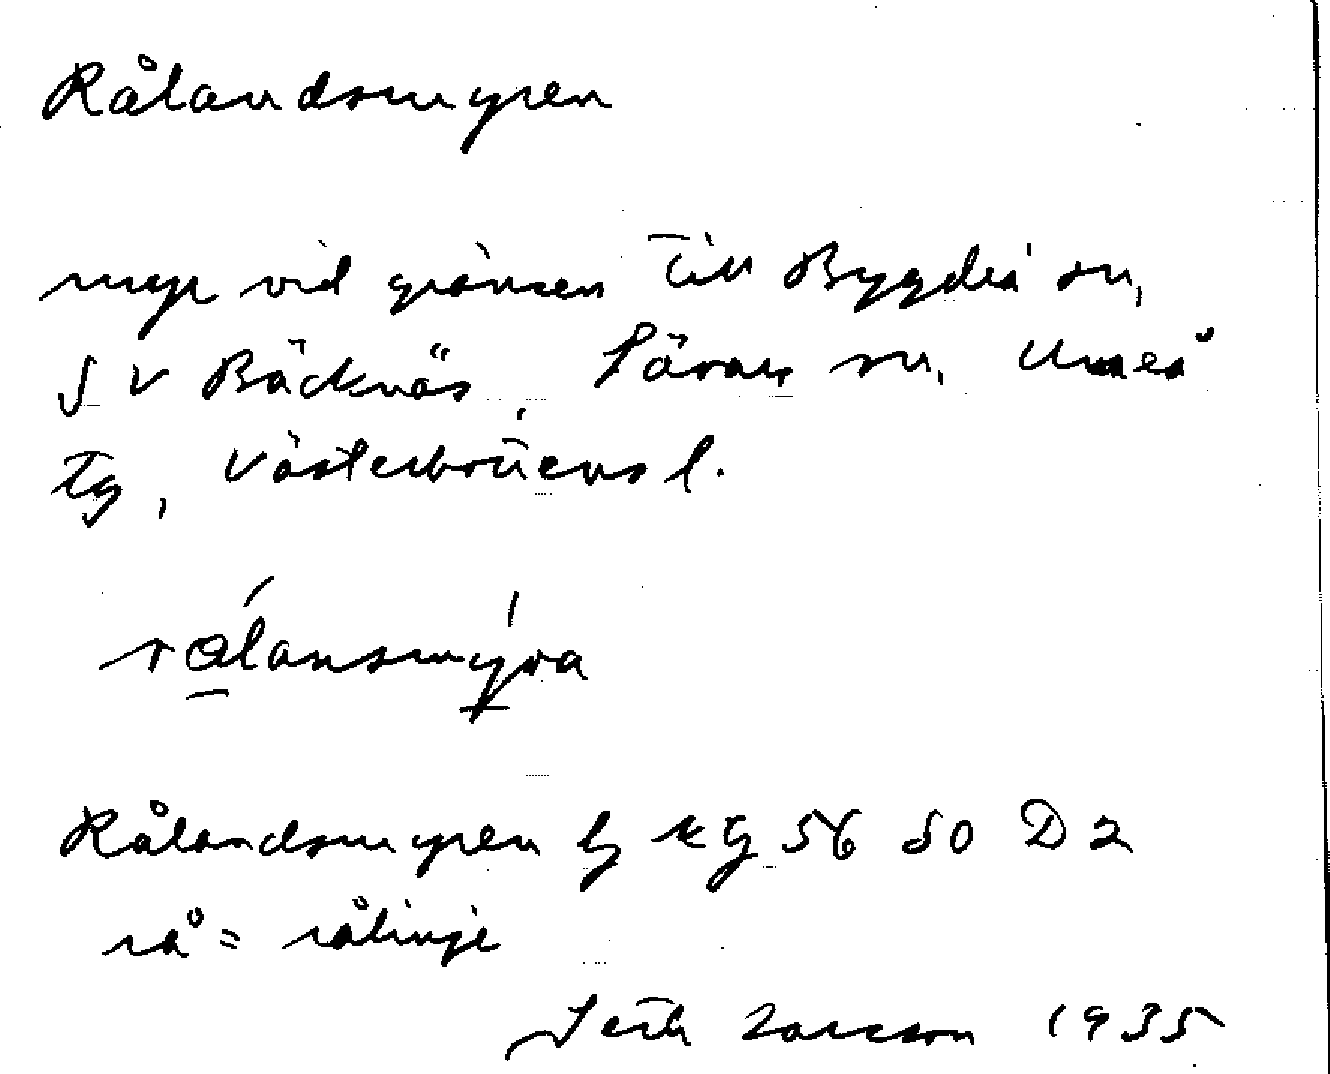 Rålandsmyren
myr vid gränsen till Bygdeå sn,
SV Bäcknäs, Sävars sn, Umeå
tg, Västerbottens l.
rålansmyra
Rålandsmyren kg 56 SO D2
rå = rålinje
Seth Larsson 1935